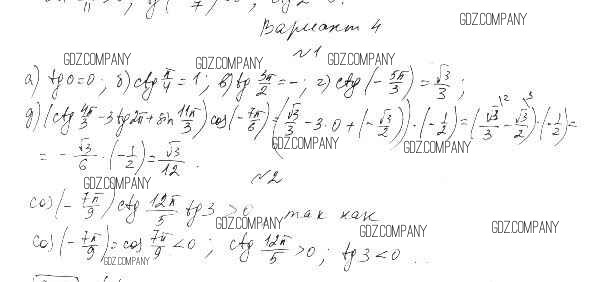 GDZ.COMPANY
Вариант 4
№1
GDZ.COMPANY GDZ.COMPANY GDZ.COMPANY
а) tg 0 = 0; б) ctg π/4 = 1; в) tg 3π/2 = –; г) ctg (- 5π/3) = √3/3;
д) (ctg 4π/3 - 3tg 2π + sin 11π/3) cos(- 7π/6) = (√3/3 - 3·0 + (- √3/2))·(- 1/2) = (√3/3 - √3/2)·(- 1/2) =
GDZ.COMPANY GDZ.COMPANY
= - √3/6 · (- 1/2) = √3/12.
№2
GDZ.COMPANY
cos(- 7π/9) ctg 12π/5 tg 3 > 0 так как
GDZ.COMPANY GDZ.COMPANY GDZ.COMPANY
cos(- 7π/9) = cos 7π/9 < 0; ctg 12π/5 > 0; tg 3 < 0
GDZ.COMPANY